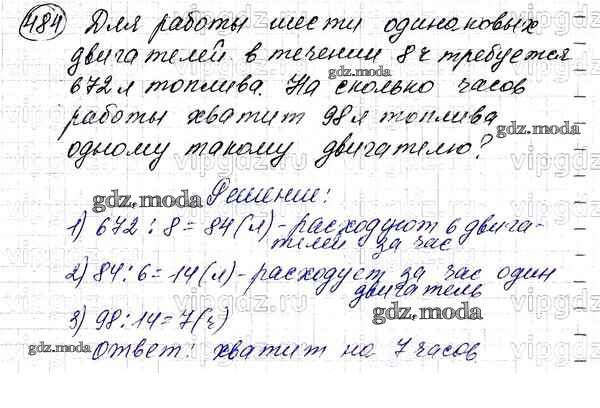 484 Для работы шести одинаковых
двигателей в течении 8 ч требуется
gdz.moda
672 л топлива. На сколько часов
работы хватит 98 л топлива
gdz.moda
одному такому двигателю?
gdz.moda Решение:
1) 672 : 8 = 84 (л) - расходуют 6 двига-
телей за час
2) 84 : 6 = 14 (л) - расходует за час один
двигатель
3) 98 : 14 = 7 (ч)
gdz.moda
gdz.moda Ответ: хватит на 7 часов